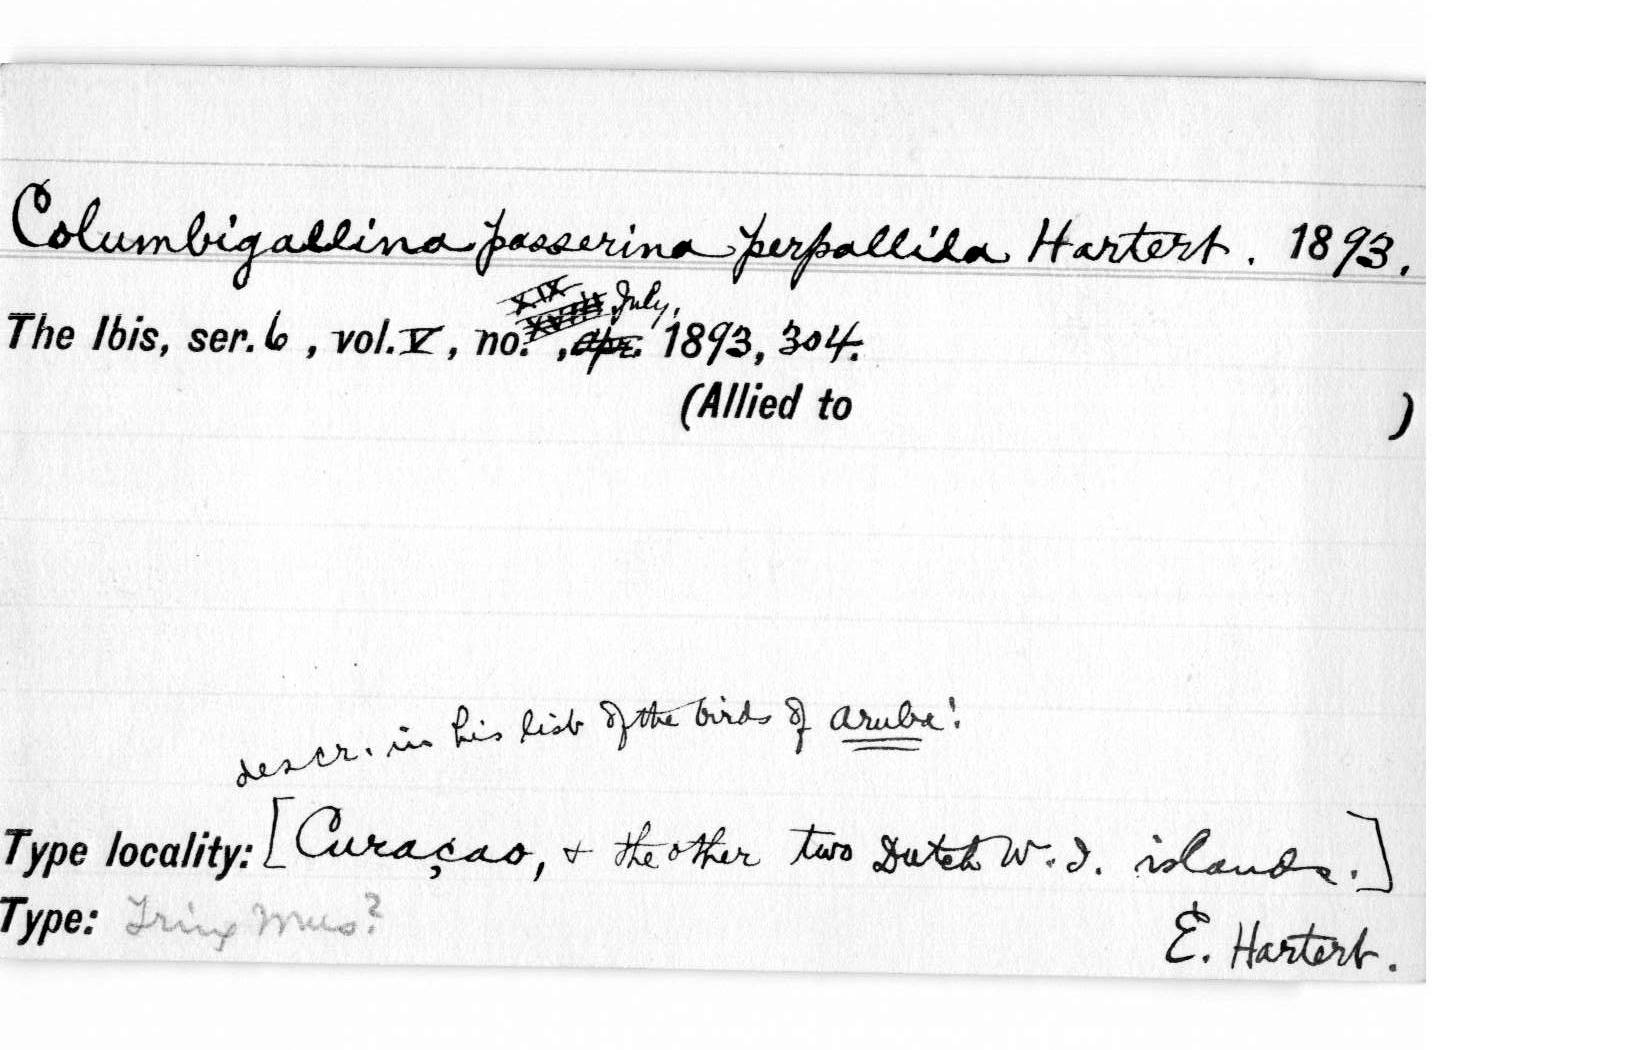 Columbigallina passerina perpallida Hartert. 1893.
XIX
XVIII July,
The Ibis, ser. 6, vol. V, no. , Apr. 1893, 304.
(Allied to )
descr. in his list of the birds of Aruba!
Type locality: [Curaçao, + the other two Dutch W. I. islands.]
Type: Tring Mus?
E. Hartert.